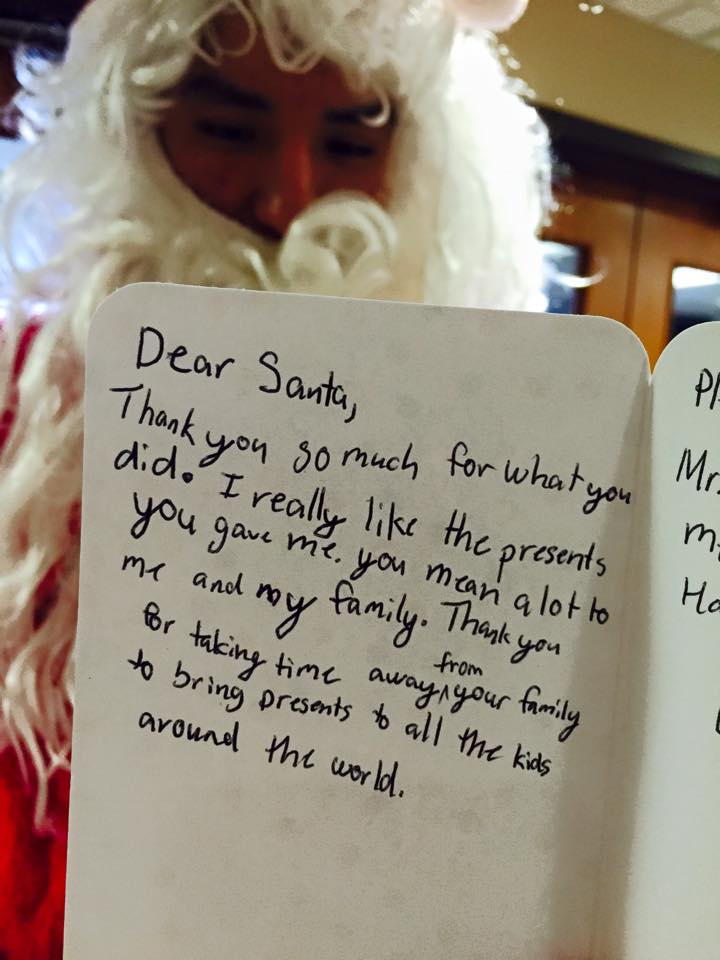 Dear Santa,
Thank you so much for what you
did. I really like the presents
you gave me. you mean a lot to
me and my family. Thank you
for taking time away from your family
to bring presents to all the kids
around the world.
Mr
Ha